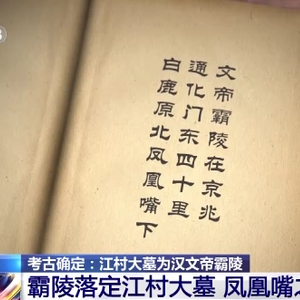 文帝霸陵在京兆
通化门东四十里
白鹿原北凤凰嘴下
考古确定：江村大墓为汉文帝霸陵
霸陵落定江村大墓 凤凰嘴